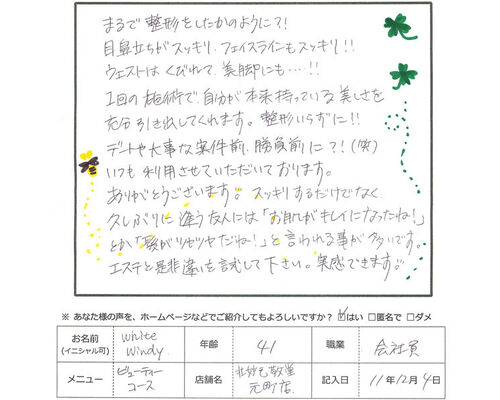 まるで整形をしたかのように?!
目鼻立ちがスッキリ、フェイスラインもスッキリ!!
ウェストはくびれて、美脚にも…!!
1回の施術で、自分が本来持っている美しさを
充分引き出してくれます。整形いらずに!!
デートや大事な案件前、勝負前に?!(笑)
いつも利用させていただいております。
ありがとうございます!! スッキリするだけでなく、
久しぶりに逢う友人には「お肌がキレイになったね!」
とか「髪がツヤツヤだね!」と言われる事が多いです。
エステと是非違いを試して下さい。実感できます!!
※ あなた様の声を、ホームページなどでご紹介してもよろしいですか? ☑はい □匿名で □ダメ
お名前 (イニシャル可) White Windy. 年齢 41 職業 会社員
メニュー ビューティーコース 店舗名 元町店. 記入日 11年12月4日